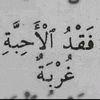 فَقْدُ ٱلْأَحِبَّةِ
غُرْبَةٌ